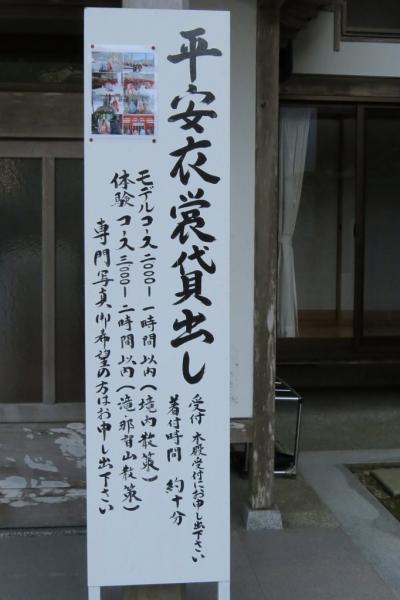 平安衣裳貸出し
受付 本殿受付にお申し出下さい
着付時間 約十分
モデルコース 二〇〇〇ー 一時間以内(境内散策)
体験コース 三〇〇〇ー 二時間以内(滝・那智山散策)
専門写真御希望の方はお申し出下さい